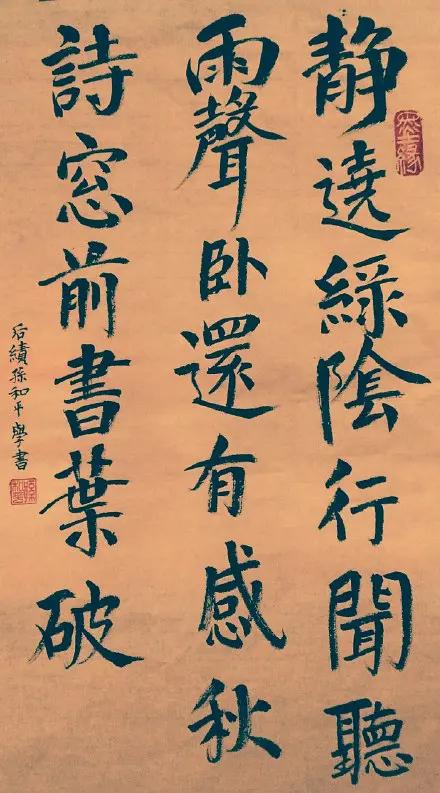 静遶綠陰行聞聽
雨聲卧還有感秋
詩窓前書葉破
后績孫和平學書